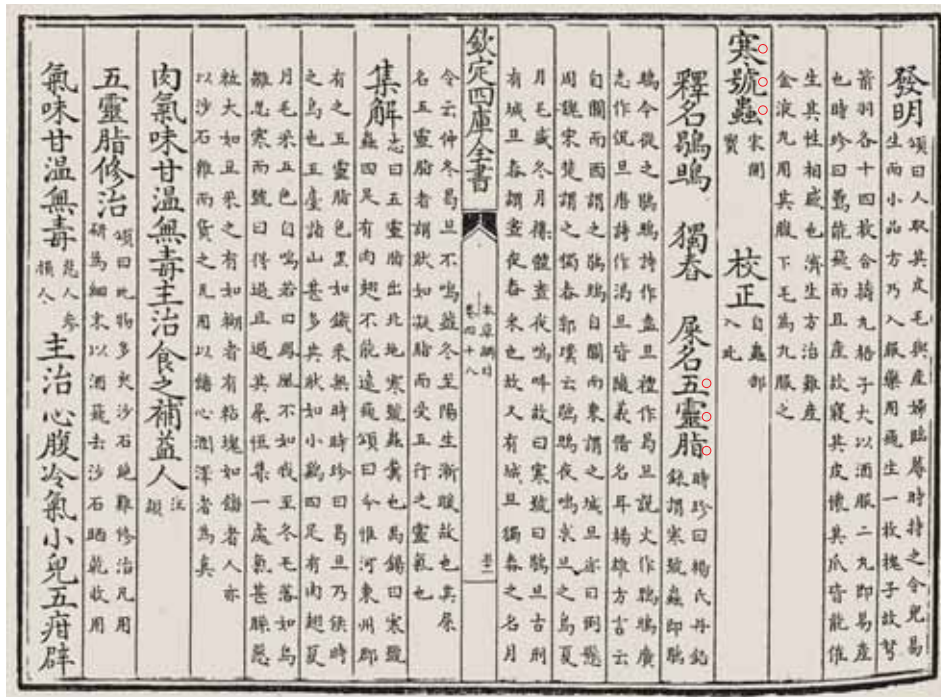 發明頌曰人取其皮毛與産婦臨蓐時持之令兒易
生而小品方乃入服藥用飛生一枚槐子故弩
箭羽各十四枚合擣丸梧子大以酒服二丸即易産
也時珍曰鸓能飛而且産故寢其皮懷其爪皆能催
生其性相感也濟生方治難産
金液丸用其腹下毛為丸服之
寒號蟲宋開寳 校正自蟲部入此
釋名鶡鴠 獨舂 屎名五靈脂時珍曰楊氏丹鉛
録謂寒號蟲即鶡
鴠今從之鶡鴠詩作盍旦禮作曷旦說文作鶡鴠廣
志作侃旦唐詩作渇旦皆隨義借名耳揚雄方言云
自關而西謂之鶡鴠自關而東謂之城旦亦曰倒懸
周魏宋楚謂之獨舂郭璞云鶡鴠夜鳴求旦之鳥夏
月毛盛冬月裸體晝夜鳴叫故曰寒號曰鶡旦古刑
有城旦舂謂晝夜舂米也故又有城旦獨舂之名月
欽定四庫全書
本草綱目
卷四十八
令云仲冬曷旦不鳴葢冬至陽生漸暖故也其屎
名五靈脂者謂狀如凝脂而受五行之靈氣也
集解志曰五靈脂出北地寒號蟲糞也禹錫曰寒號
蟲四足有肉翅不能逺飛頌曰今惟河東州郡
有之五靈脂色黑如鐵采無時時珍曰曷旦乃候時
之鳥也五臺諸山甚多其狀如小雞四足有肉翅夏
月毛采五色自鳴若曰鳳凰不如我至冬毛落如鳥
雛忍寒而號曰得過且過其屎恒集一處氣甚臊惡
粒大如豆采之有如糊者有粘塊如餹者人亦
以沙石雜而貨之凡用以餹心潤澤者為真
肉氣味甘温無毒主治食之補益人汪頴
五靈脂修治頌曰此物多夾沙石絶難修治凡用
研為細末以酒飛去沙石晒乾收用
氣味甘温無毒惡人參損人 主治心腹冷氣小兒五疳辟